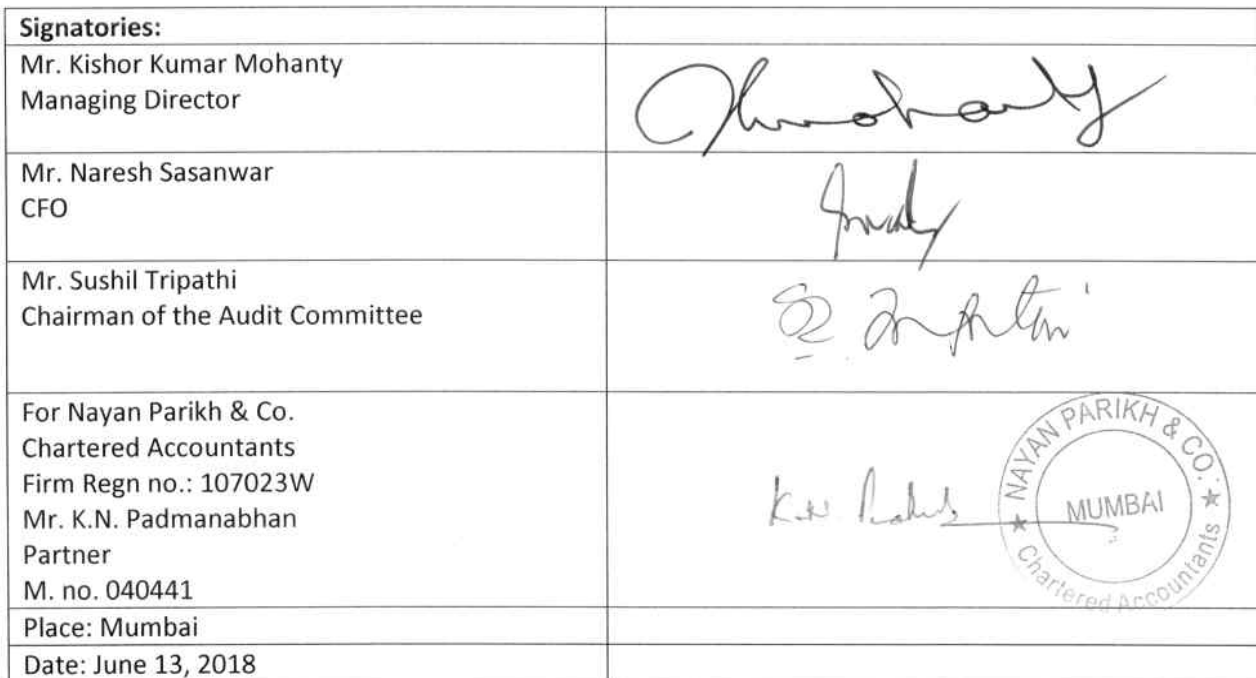 Signatories:
Mr. Kishor Kumar Mohanty
Managing Director
Mr. Naresh Sasanwar
CFO
Mr. Sushil Tripathi
Chairman of the Audit Committee
For Nayan Parikh & Co.
Chartered Accountants
Firm Regn no.: 107023W
Mr. K.N. Padmanabhan
Partner
M. no. 040441
K.N.
NAYAN PARIKH & CO.
MUMBAI
Chartered Accountants
Place: Mumbai
Date: June 13, 2018